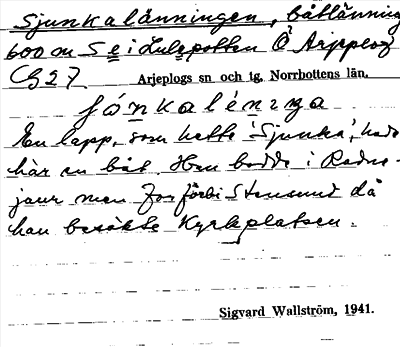 Sjunkalänningen, båtlänning
600 m S e i Lulepotten Ö Arjeplog
C927. Arjeplogs sn och tg, Norrbottens län.
En lapp, som hette 'Sjunka', hade
här en båt. Han bodde i Radne-
jaur men for förbi Stensund då
han besökte Kyrkplatsen.
Sigvard Wallström, 1941.